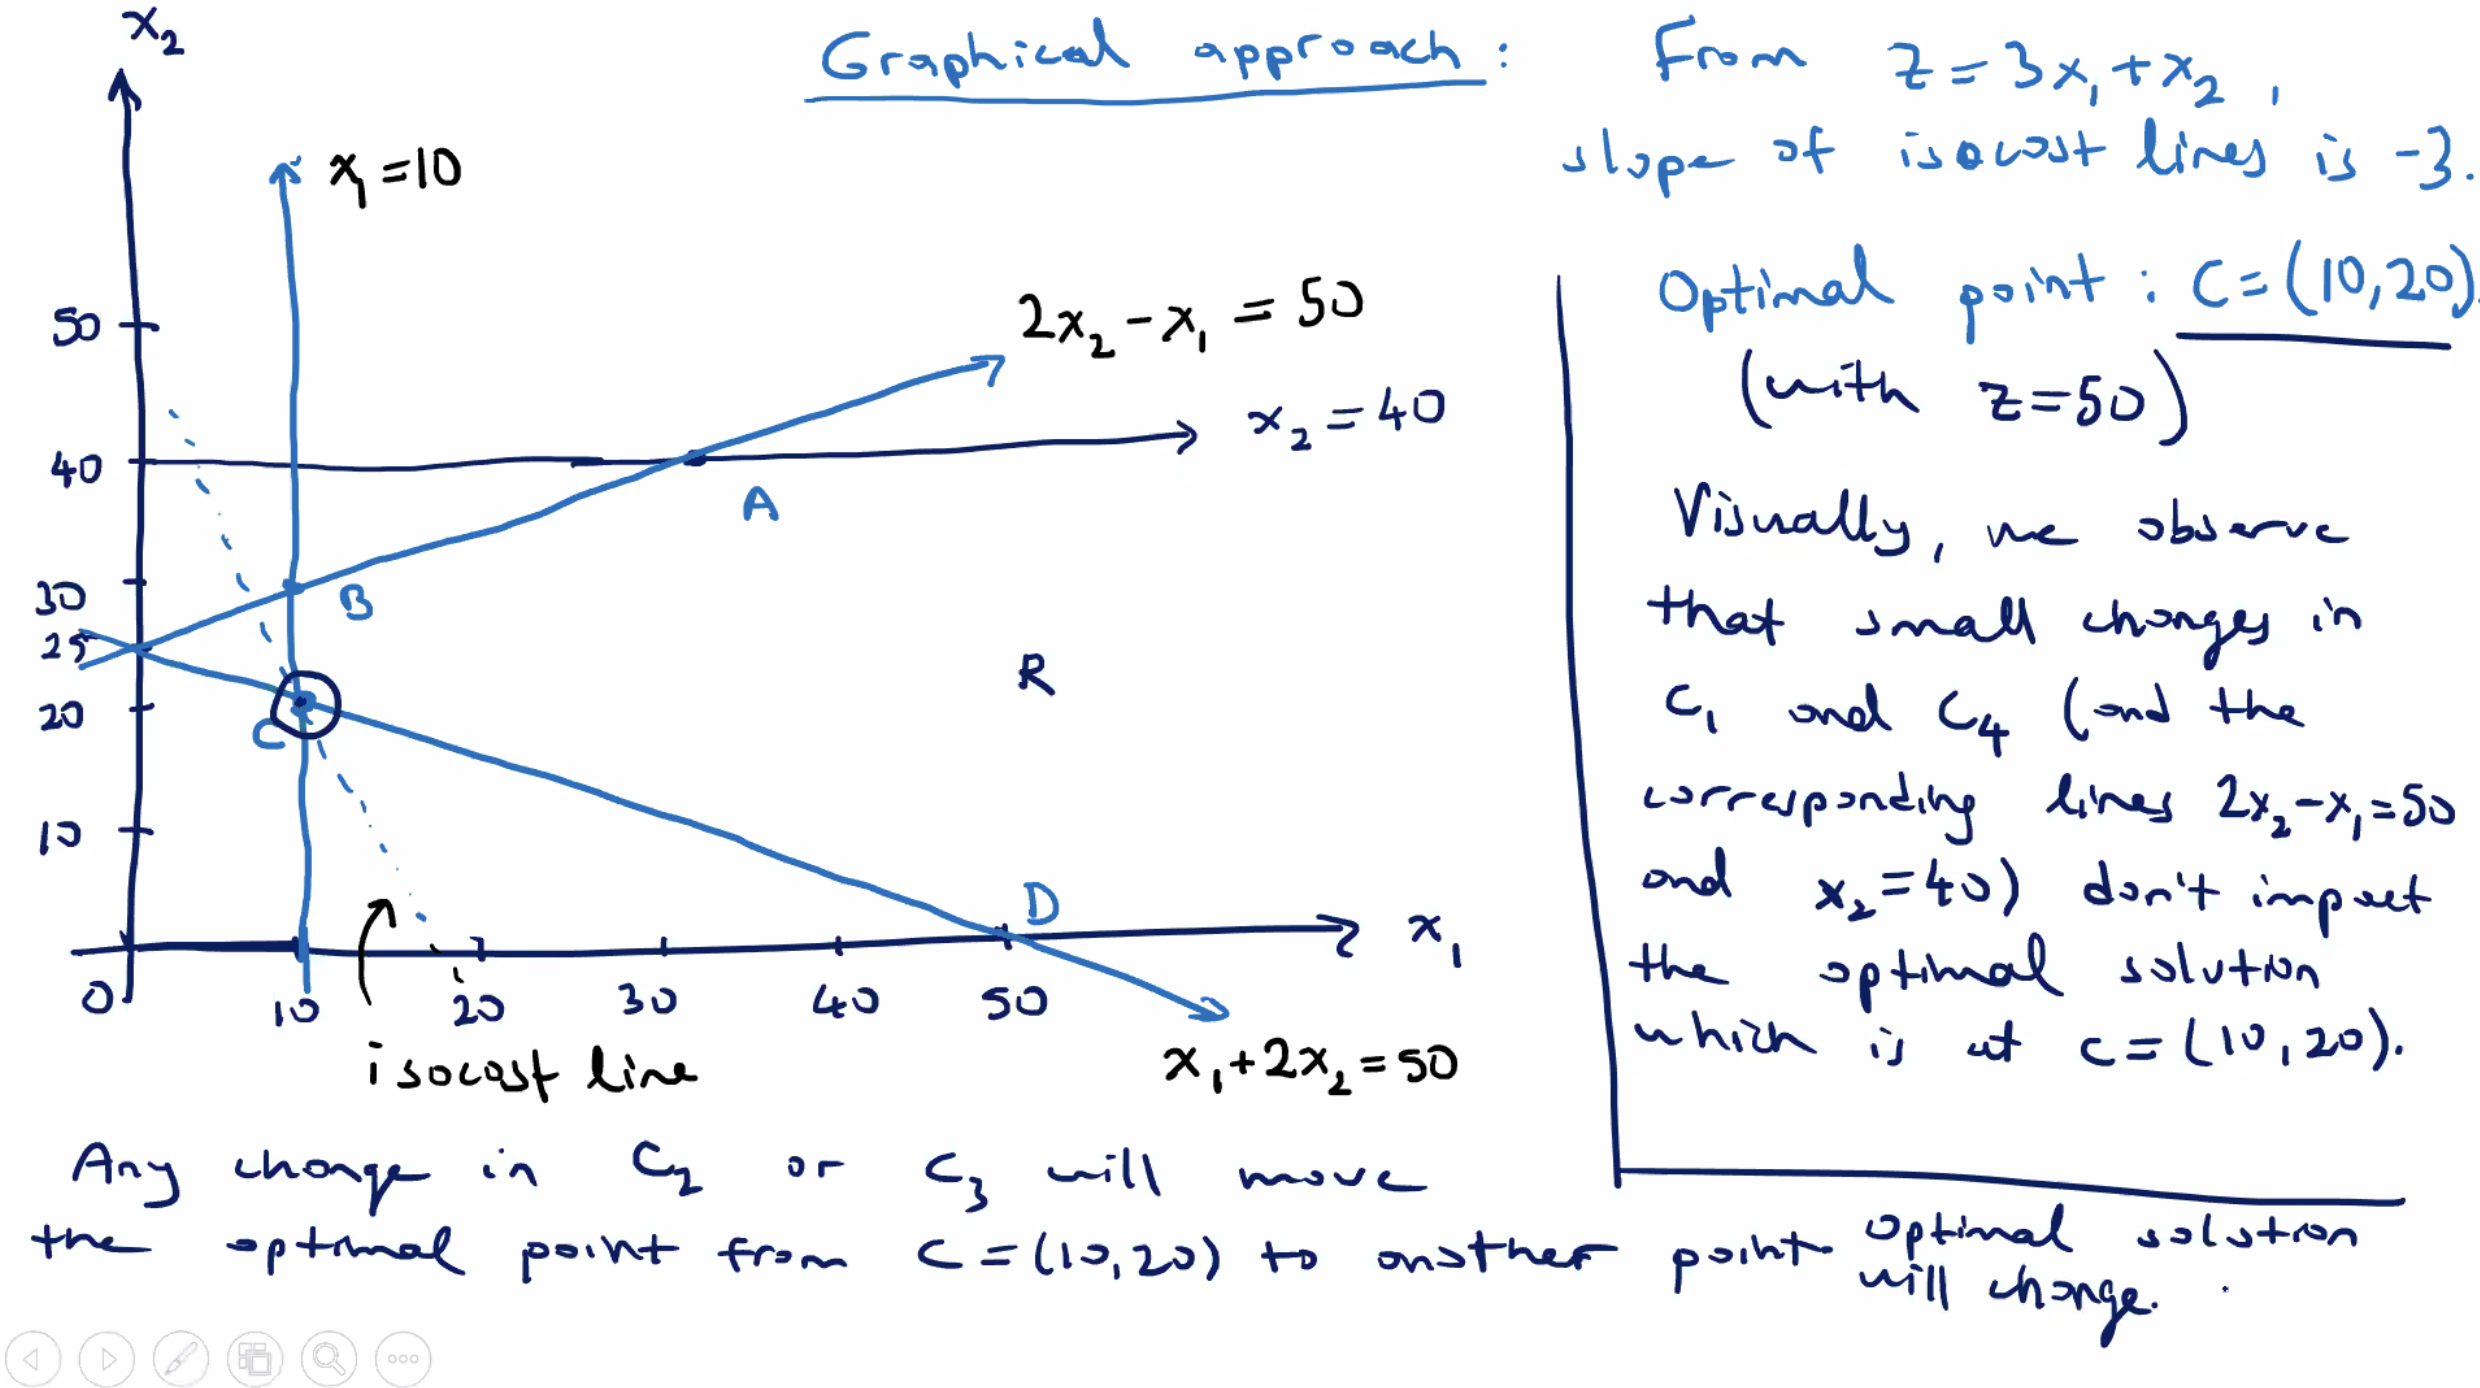 Graphical approach :
From z = 3x₁ + x₂ ,
slope of isocost lines is -3.
x₂
x₁ = 10
2x₂ - x₁ = 50
x₂ = 40
50
40
30
25
20
10
0
10
20
30
40
50
x₁
A
B
C
D
R
isocost line
x₁ + 2x₂ = 50
Optimal point : C = (10,20).
(with z = 50)
Visually, we observe
that small changes in
C₁ and C₄ (and the
corresponding lines 2x₂ - x₁ = 50
and x₂ = 40) don't impact
the optimal solution
which is at C = (10,20).
Any change in C₂ or C₃ will move
the optimal point from C = (10,20) to another point.
Optimal solution
will change.